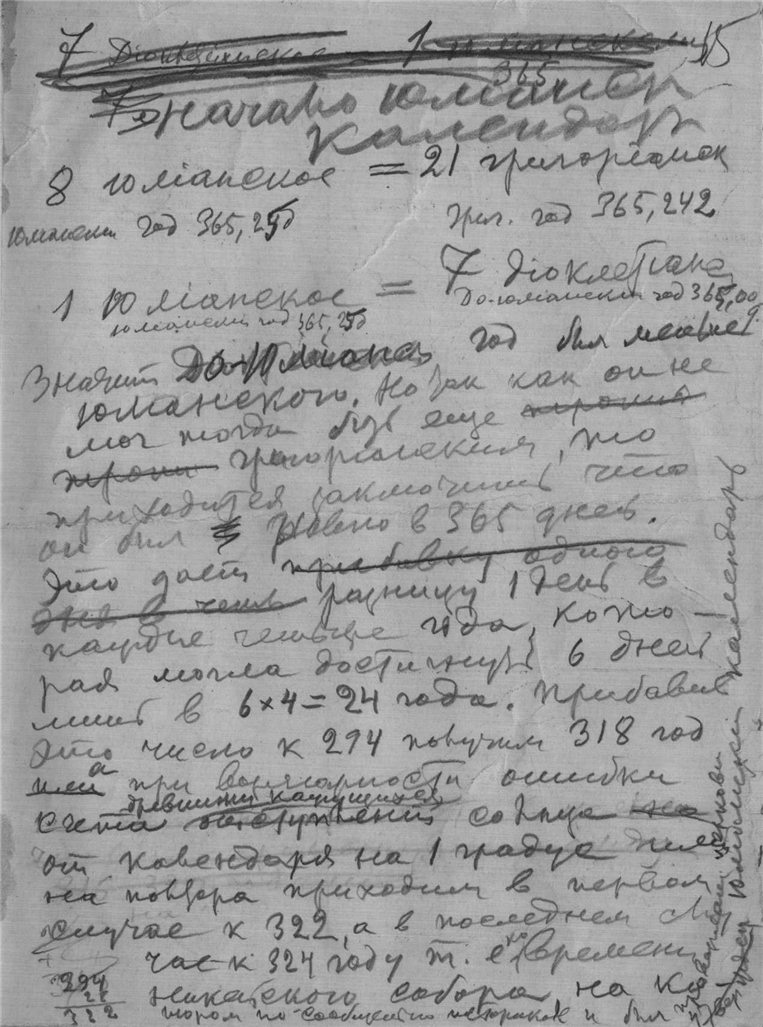 7 Діоклетіанское 1 юліанское 15
365
7 Начало юлианск
календар
8 юліанское = 21 григоріанск
Юлианский год 365,25д Григ. год 365,242
1 Юліанское = 7 діоклетіана
юлианский год 365,25д До-юлианский год 365,00
Значит До-Юлиана год был меньше
юлианского. Но так как он не
мог тогда быть еще
григорианским, то
приходится заключить что
он был равно в 365 дней.
Это даст прибавку одного
дня в четыре разницу 1 день в
каждые четыре года, кото-
рая могла достигнуть 6 дней
лишь в 6×4=24 года. Прибавив
это число к 294 получим 318 год
или а при вероятности ошибки
древними кажущихся
счета наступлений солнца на
от календаря на 1 градус или
на полтора приходим в первом
случае к 322, а в последнем слу
чае к 324 году т. е. ко времени
294 никейского собора на ко
28
322 тором по сообщению историков и был
церкви юлианский календарь